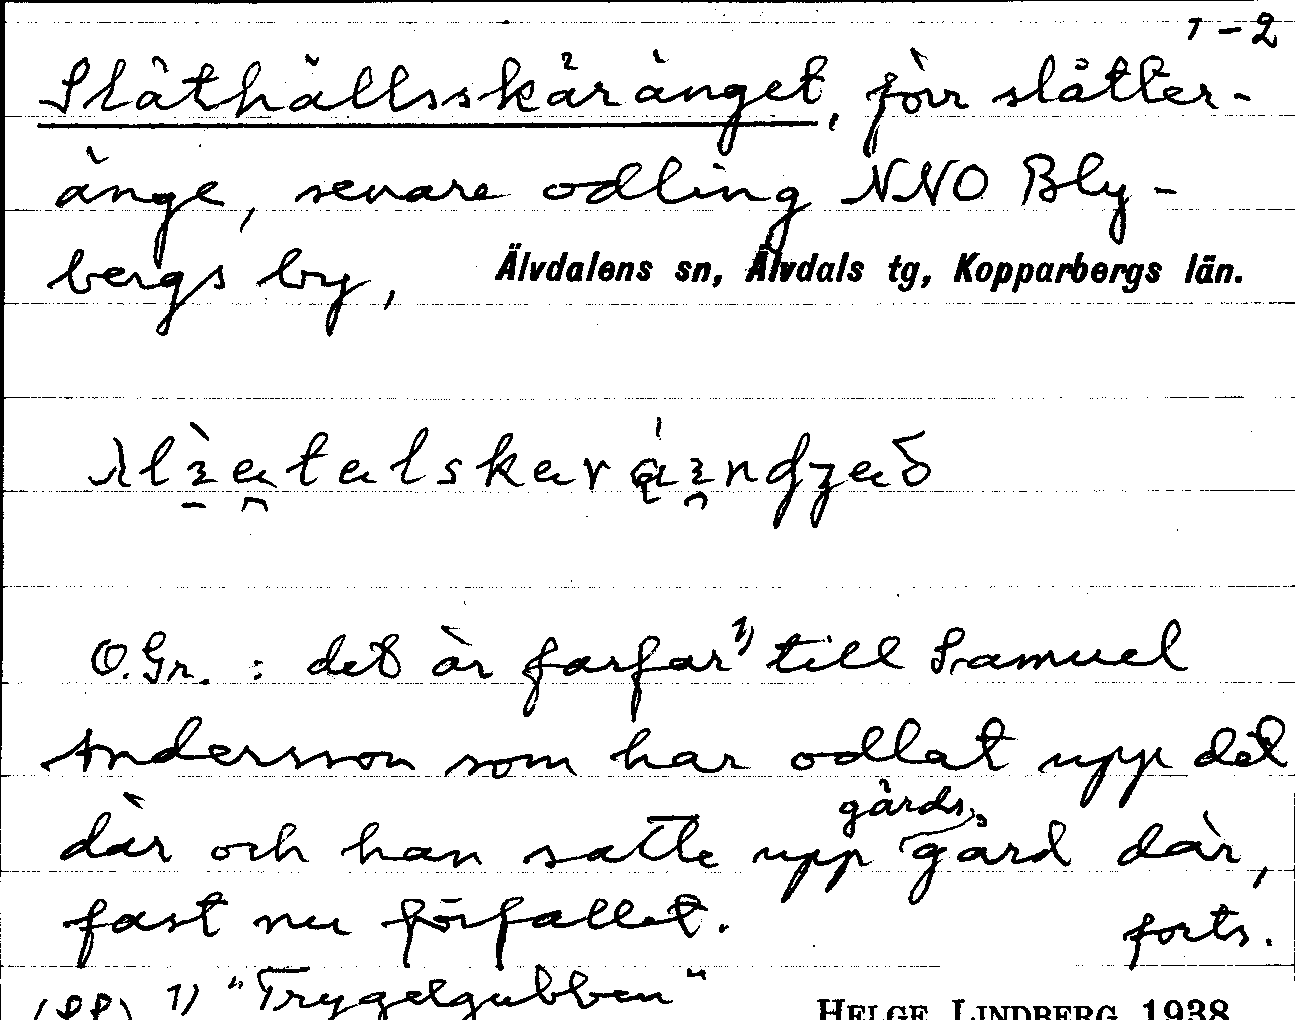 1-2
Slåthällsskäränget, förr slåtter-
änge, senare odling NNO Bly-
bergs by, Älvdalens sn, Älvdals tg, Kopparbergs län.
O.Gr. : det är farfar 1) till Samuel
Andersson som har odlat upp det
gärds
där och han satte upp gård där,
fast nu förfallet. forts.
1) "Trygelgubben"
HELGE LINDBERG 1938